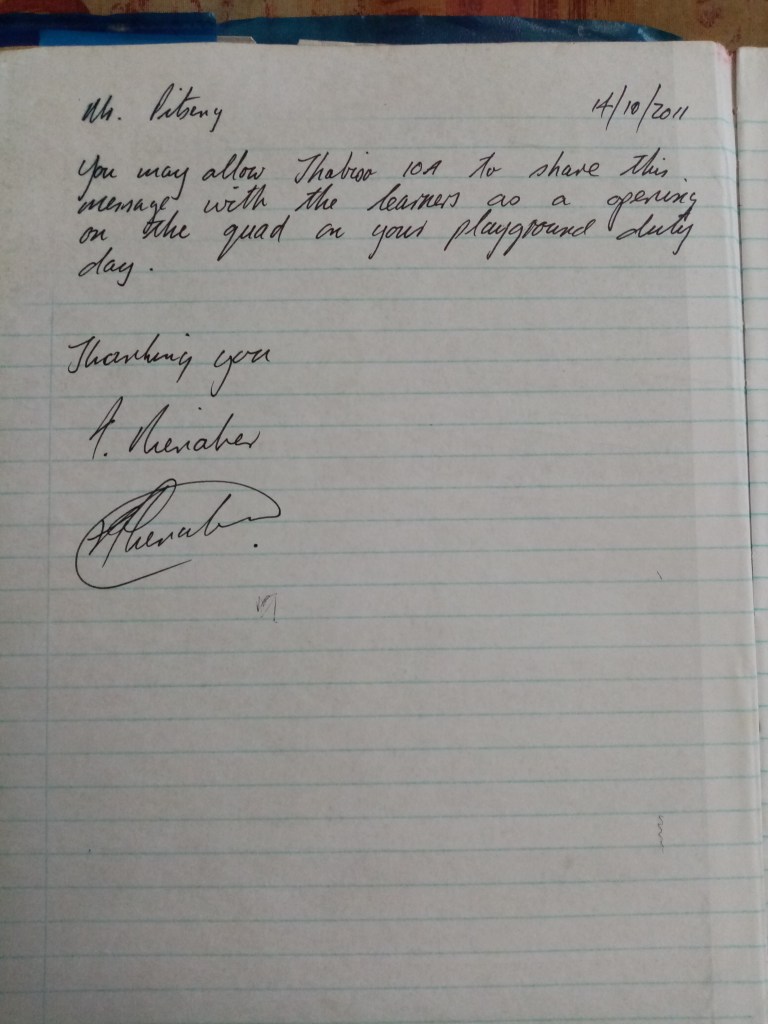 Mr. Pitseng 14/10/2011
You may allow Thabiso 10A to share this
message with the learners as a opening
on the quad on your playground duty
day.
Thanking you
A. Dienaber